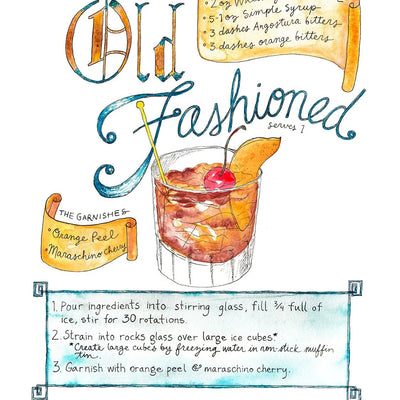 Old
• 2 oz
• 5-1 oz Simple Syrup
• 3 dashes Angostura bitters
• 3 dashes orange bitters
Fashioned
serves 1
THE GARNISHES
• Orange Peel
• Maraschino Cherry
1. Pour ingredients into stirring glass, fill 3/4 full of
ice, stir for 30 rotations.
2. Strain into rocks glass over large ice cubes.*
*Create large cubes by freezing water in non-stick muffin
tin.
3. Garnish with orange peel @ maraschino cherry.